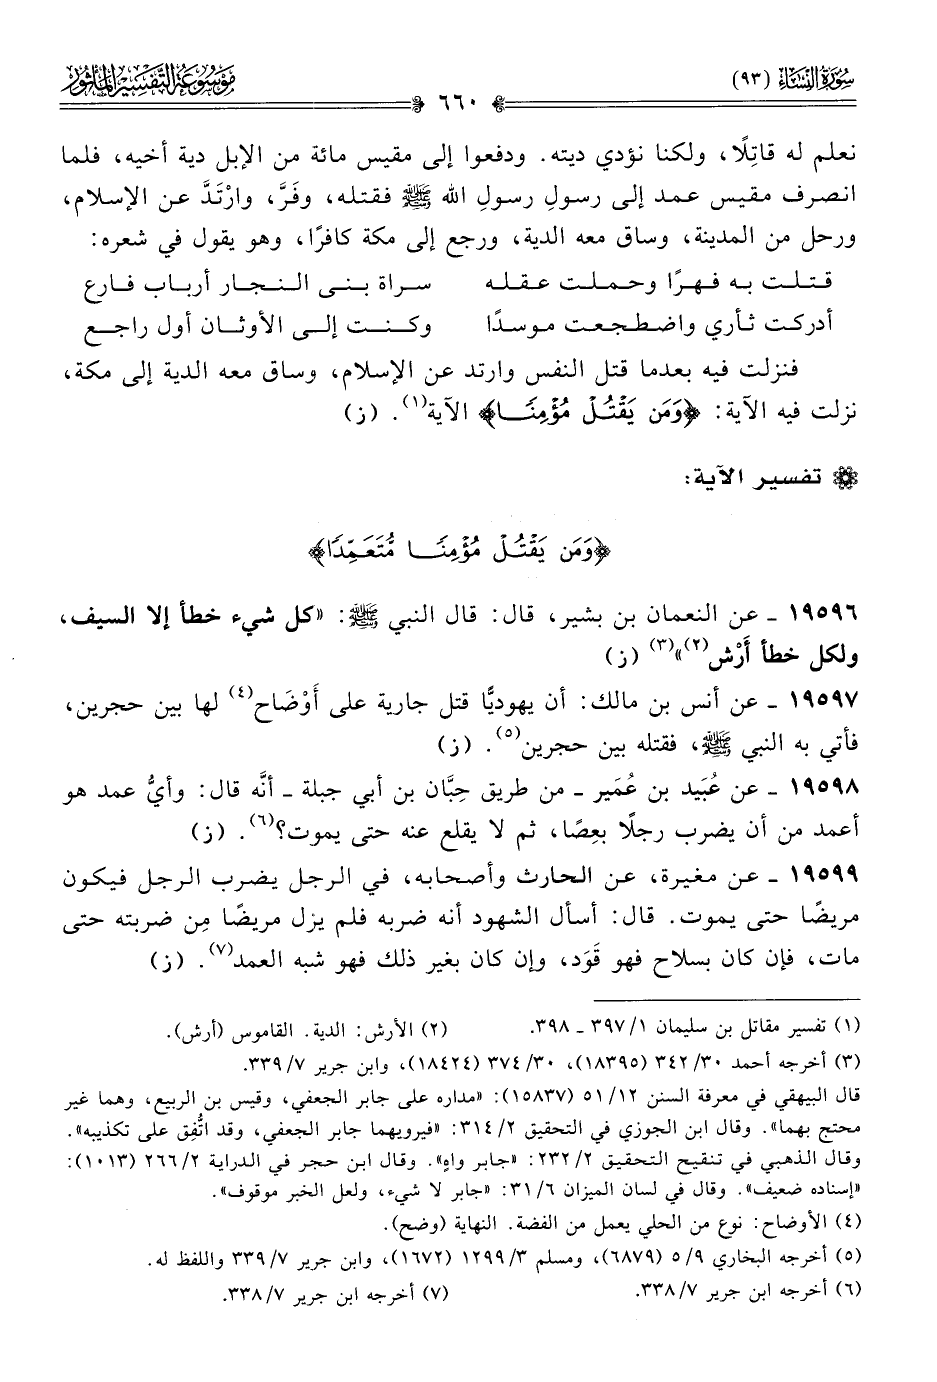 سُورَةُ النِّسَاءِ (٩٣)
٦٦٠
مَوْسُوعَةُ التَّفْسِيرِ المَأْثُورِ
نعلم له قاتِلًا، ولكنا نؤدي ديته. ودفعوا إلى مقيس مائة من الإبل دية أخيه، فلما
انصرف مقيس عمد إلى رسولِ رسولِ الله ﷺ فقتله، وفَرَّ، وارْتَدَّ عن الإسلام،
ورحل من المدينة، وساق معه الدية، ورجع إلى مكة كافرًا، وهو يقول في شعره:
قتلت به فهرًا وحملت عقله سراة بنى النجار أرباب فارع
أدركت ثأري واضطجعت موسدًا وكنت إلى الأوثان أول راجع
فنزلت فيه بعدما قتل النفس وارتد عن الإسلام، وساق معه الدية إلى مكة،
نزلت فيه الآية: ﴿وَمَن يَقْتُلْ مُؤْمِنًا﴾ الآية(١). (ز)
تفسير الآية:
﴿وَمَن يَقْتُلْ مُؤْمِنًا مُّتَعَمِّدًا﴾
١٩٥٩٦ ـ عن النعمان بن بشير، قال: قال النبي ﷺ: «كل شيء خطأ إلا السيف،
ولكل خطأ أَرْش(٢)»(٣) (ز)
١٩٥٩٧ ـ عن أنس بن مالك: أن يهوديًّا قتل جارية على أَوْضَاح(٤) لها بين حجرين،
فأتي به النبي ﷺ، فقتله بين حجرين(٥). (ز)
١٩٥٩٨ ـ عن عُبَيد بن عُمَير ـ من طريق حِبَّان بن أبي جبلة ـ أنَّه قال: وأيُّ عمد هو
أعمد من أن يضرب رجلًا بعِصًا، ثم لا يقلع عنه حتى يموت؟(٦). (ز)
١٩٥٩٩ ـ عن مغيرة، عن الحارث وأصحابه، في الرجل يضرب الرجل فيكون
مريضًا حتى يموت. قال: أسأل الشهود أنه ضربه فلم يزل مريضًا مِن ضربته حتى
مات، فإن كان بسلاح فهو قَوَد، وإن كان بغير ذلك فهو شبه العمد(٧). (ز)
(١) تفسير مقاتل بن سليمان ١/ ٣٩٧ ـ ٣٩٨. (٢) الأرش: الدية. القاموس (أرش).
(٣) أخرجه أحمد ٣٠/ ٣٤٢ (١٨٣٩٥)، ٣٠/ ٣٧٤ (١٨٤٢٤)، وابن جرير ٧/ ٣٣٩.
قال البيهقي في معرفة السنن ١٢/ ٥١ (١٥٨٣٧): «مداره على جابر الجعفي، وقيس بن الربيع، وهما غير
محتج بهما». وقال ابن الجوزي في التحقيق ٢/ ٣١٤: «فيرويهما جابر الجعفي، وقد اتُّفِق على تكذيبه».
وقال الذهبي في تنقيح التحقيق ٢/ ٢٣٢: «جابر واهٍ». وقال ابن حجر في الدراية ٢/ ٢٦٦ (١٠١٣):
«إسناده ضعيف». وقال في لسان الميزان ٦/ ٣١: «جابر لا شيء، ولعل الخبر موقوف».
(٤) الأوضاح: نوع من الحلي يعمل من الفضة. النهاية (وضح).
(٥) أخرجه البخاري ٩/ ٥ (٦٨٧٩)، ومسلم ٣/ ١٢٩٩ (١٦٧٢)، وابن جرير ٧/ ٣٣٩ واللفظ له.
(٦) أخرجه ابن جرير ٧/ ٣٣٨. (٧) أخرجه ابن جرير ٧/ ٣٣٨.